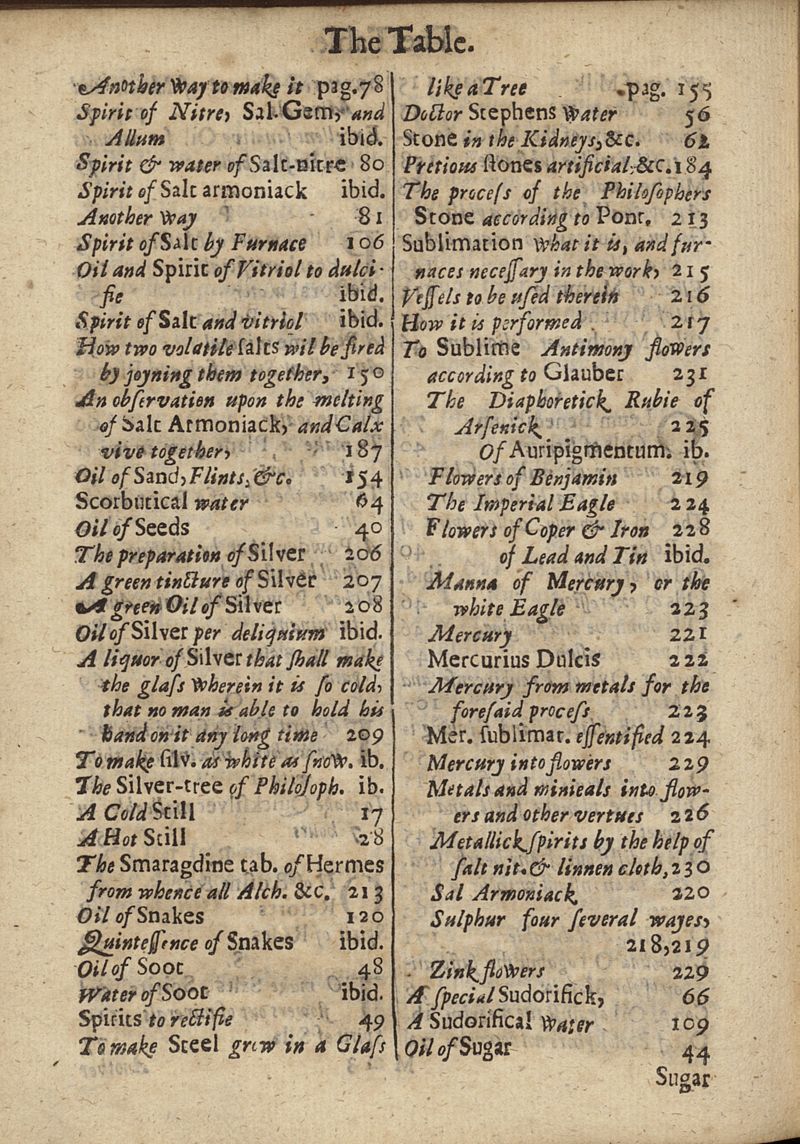 The Table.
Another Way to make it pag.78
Spirit of Nitre, Sal.Gem, and
Allum ibid.
Spirit & water of Salt-nitre 80
Spirit of Salt armoniack ibid.
Another Way 81
Spirit of Salt by Furnace 106
Oil and Spirit of Vitriol to dulci-
fie ibid.
Spirit of Salt and vitriol ibid.
How two volatile ſalts wil be fired
by joyning them together, 150
An obſervation upon the melting
of Salt Armoniack, and Calx
vive together, 187
Oil of Sand, Flints, &c. 154
Scorbutical water 64
Oil of Seeds 40
The preparation of Silver 206
A green tincture of Silver 207
A green Oil of Silver 208
Oil of Silver per deliquium ibid.
A liquor of Silver that ſhall make
the glaſs Wherein it is ſo cold,
that no man is able to hold his
hand on it any long time 209
To make ſilv. as white as ſnoW. ib.
The Silver-tree of Philoſoph. ib.
A Cold Still 17
A Hot Still 28
The Smaragdine tab. of Hermes
from whence all Alch. &c. 213
Oil of Snakes 120
Quinteſſence of Snakes ibid.
Oil of Soot 48
Water of Soot ibid.
Spirits to rectifie 49
To make Steel grow in a Glaſs
like a Tree pag. 155
Doctor Stephens Water 56
Stone in the Kidneys, &c. 62
Pretious ſtones artificial, &c. 184
The proceſs of the Philoſophers
Stone according to Pont. 213
Sublimation What it is, and fur-
naces neceſſary in the work, 215
Veſſels to be uſed therein 216
How it is performed 217
To Sublime Antimony flowers
according to Glauber 231
The Diaphoretick Rubie of
Arſenick 225
Of Auripigmentum. ib.
Flowers of Benjamin 219
The Imperial Eagle 224
Flowers of Coper & Iron 228
of Lead and Tin ibid.
Manna of Mercury, or the
white Eagle 223
Mercury 221
Mercurius Dulcis 222
Mercury from metals for the
foreſaid proceſs 223
Mer. ſublimat. eſſentified 224
Mercury into flowers 229
Metals and minieals into flow-
ers and other vertues 226
Metallick ſpirits by the help of
ſalt nit. & linnen cloth, 230
Sal Armoniack 220
Sulphur four ſeveral wayes,
218,219
Zink floWers 229
A ſpecial Sudorifick, 66
A Sudorifical Water 109
Oil of Sugar 44
Sugar